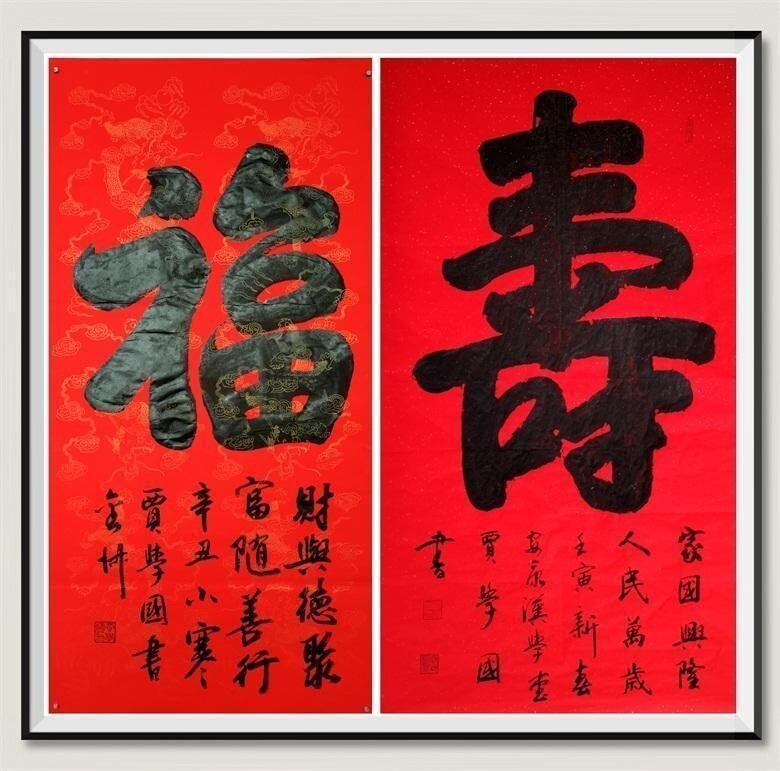 福
財與德聚
富隨善行
辛丑小寒
賈學國書
壽
家國興隆
人民萬歲
壬寅新春
安康漢學堂
賈學國
書